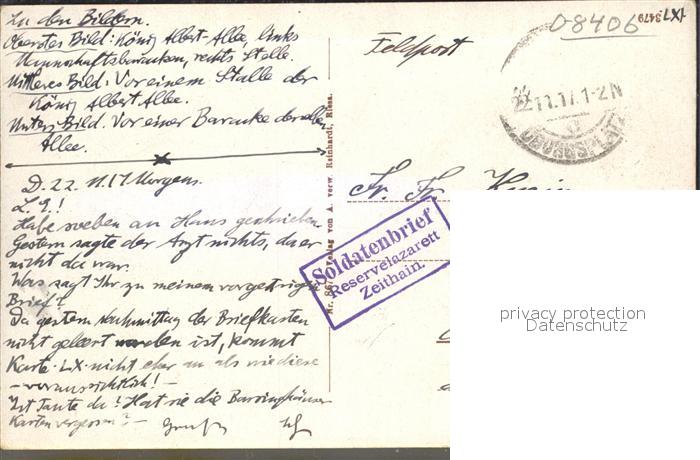 Zu den Bildern.
Oberstes Bild: König Albert-Allee, links
Mannschaftsbaracken, rechts Ställe.
Mittleres Bild: Vor einem Stalle der
König Albert Allee.
Unters Bild. Vor einer Baracke derselben
Allee.
D. 22. 11. 17 Morgens.
L. E.!
Habe soeben an Hans geschrieben.
Gestern sagte der Arzt nichts, da er
nicht da war.
Was sagt Ihr zu meinem vorgestrigen
Brief?
Da gestern Nachmittag der Briefkasten
nicht geleert worden ist, kommt
Karte LX nicht eher an als wie diese
– voraussichtlich! –
Ist Tante da? Hat sie die
Karten vergessen? –
Nr. 867 Verlag von A. verw. Reinhardt, Riesa.
Feldpost
08406
LXI
3479
22.11.17.1-2N
Soldatenbrief
Reservelazarett
Zeithain.
Fr. Fr.
privacy protection
Datenschutz